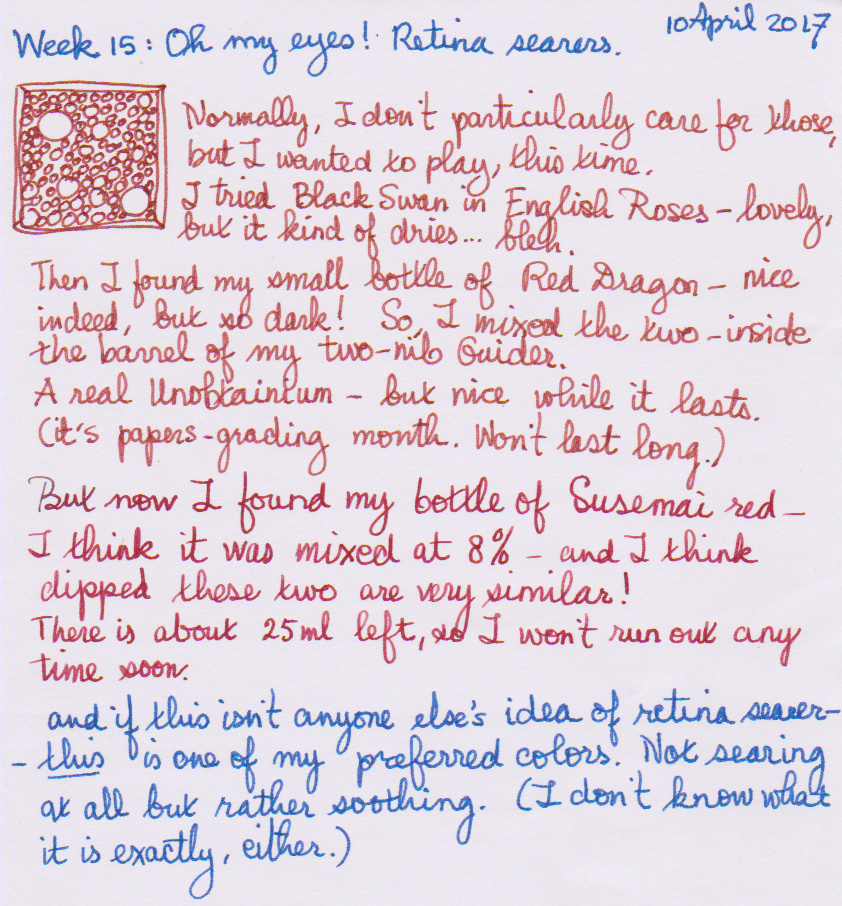 10 April 2017
Week 15: Oh my eyes! Retina searers.
Normally, I don't particularly care for those,
but I wanted to play, this time.
I tried Black Swan in English Roses – lovely,
but it kind of dries... bleh.
Then I found my small bottle of Red Dragon – nice
indeed, but so dark! So, I mixed the two – inside
the barrel of my two-nib Guider.
A real Unobtainium – but nice while it lasts.
(it's papers-grading month. Won't last long.)
But now I found my bottle of Susemai red –
I think it was mixed at 8% – and I think
dipped these two are very similar!
There is about 25ml left, so I won't run out any
time soon.
and if this isn't anyone else's idea of retina searer –
– this is one of my preferred colors. Not searing
at all but rather soothing. (I don't know what
it is exactly, either.)